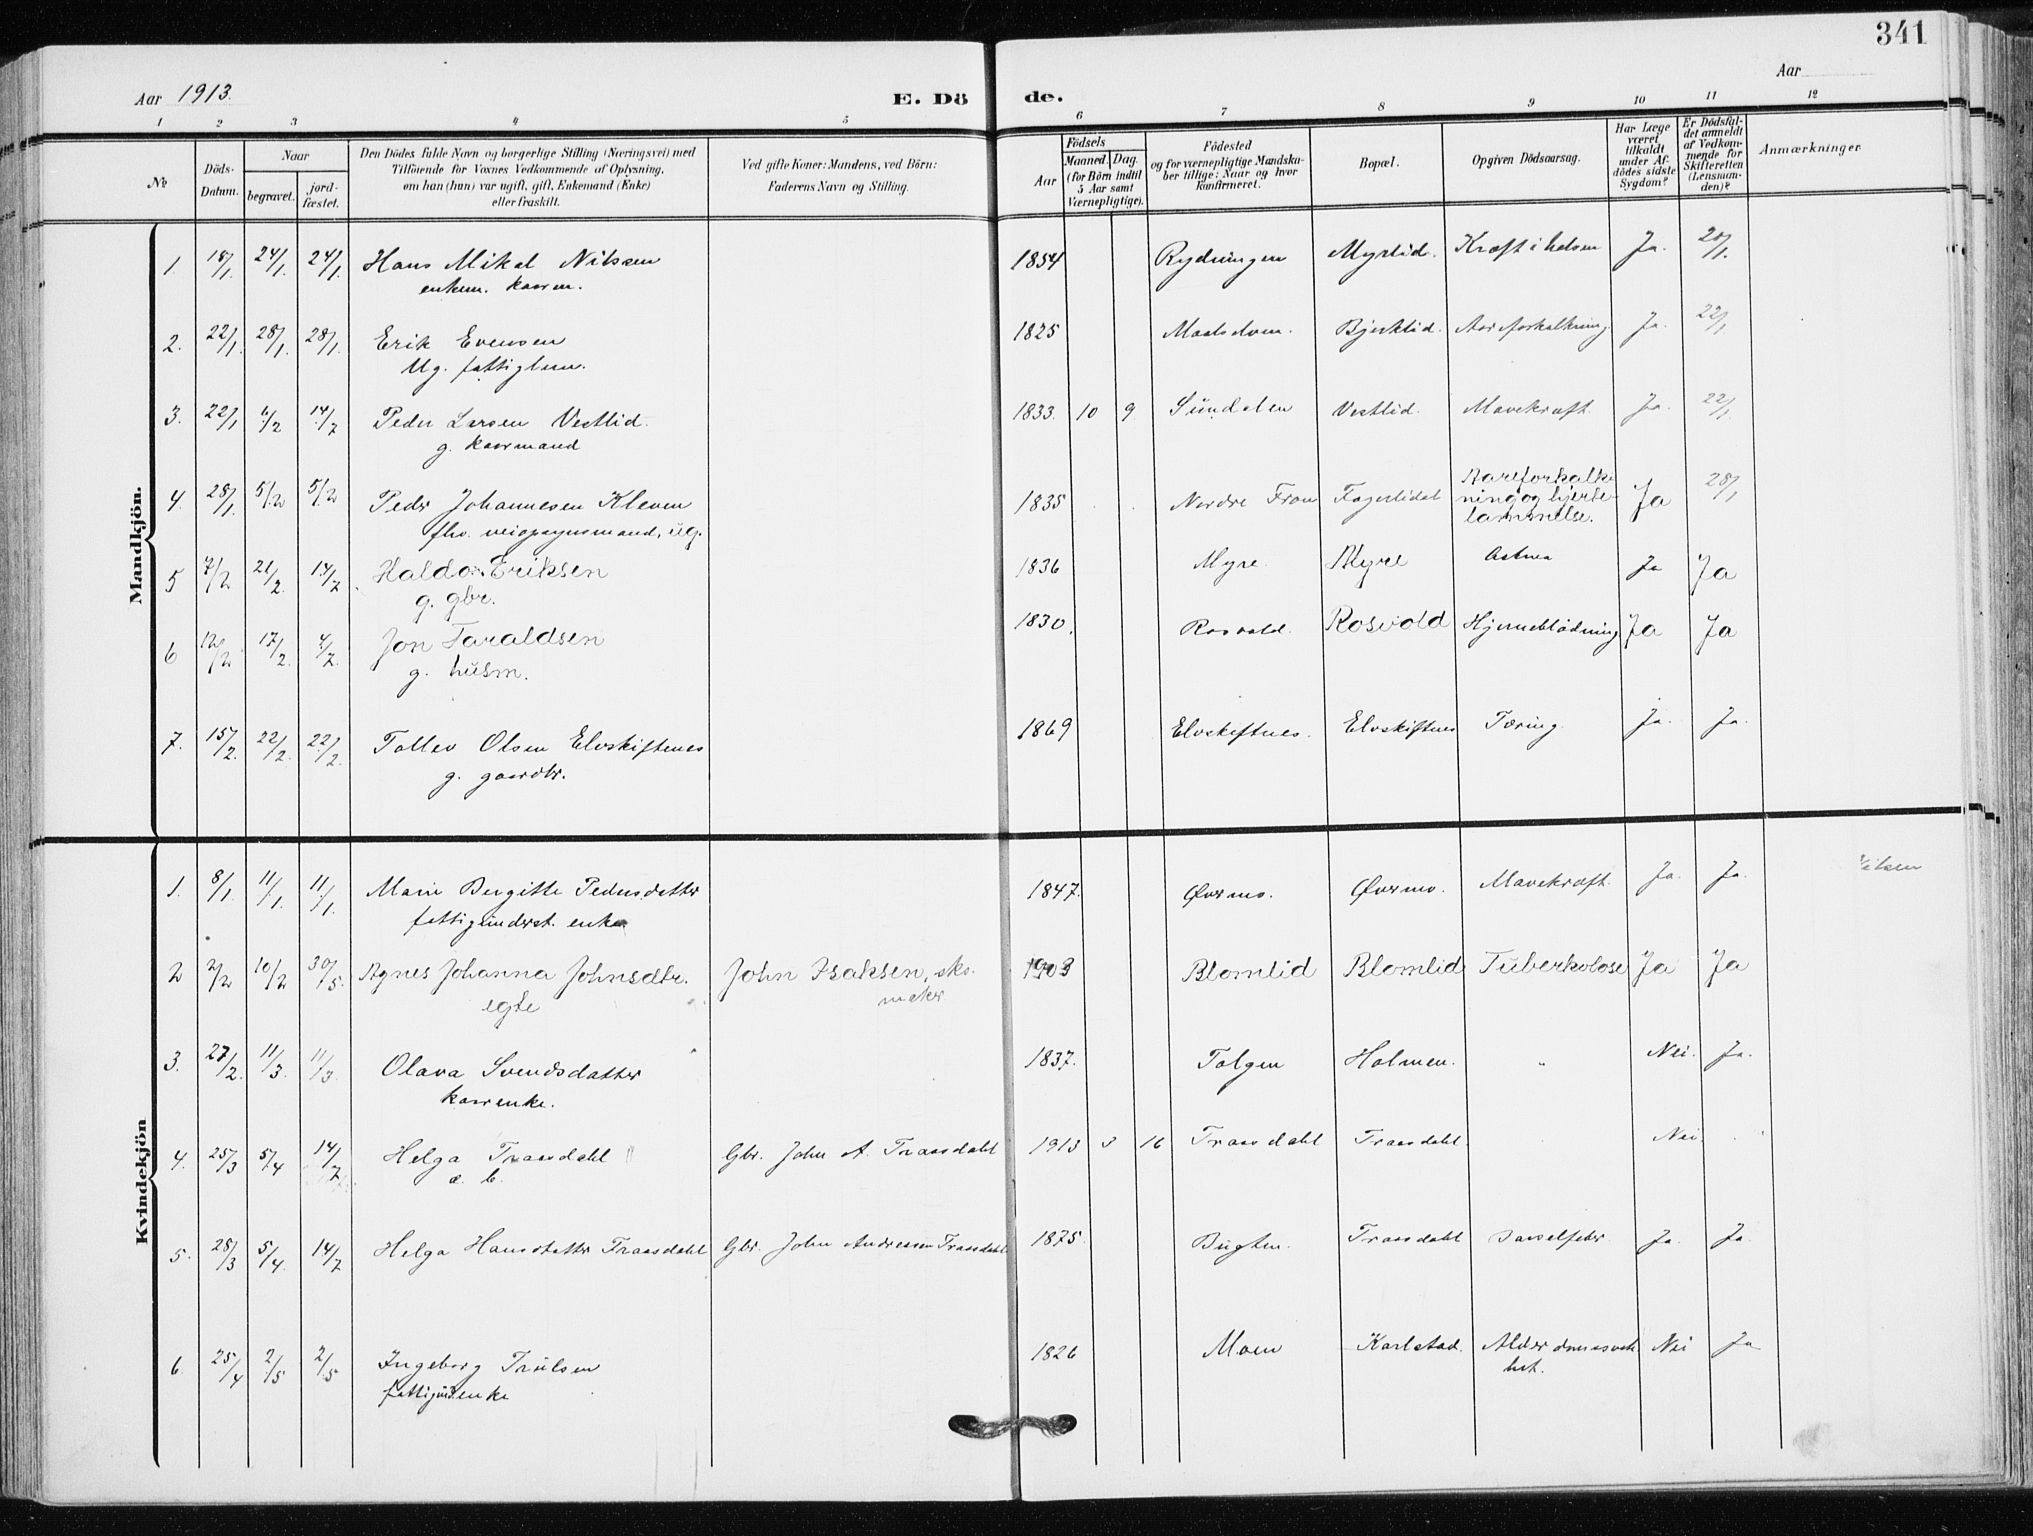 341
Aar 1913.
E. Dö
de.
Aar
1 2 3 4 5 6 7 8 9 10 11 12
No
Döds-Datum.
Naar
begravet.
jord-fæstet.
Den Dödes fulde Navn og borgerlige Stilling (Næringsvei) med
Tilföiende for Voxnes Vedkommende af Oplysning,
om han (hun) var ugift, gift, Enkemand (Enke)
eller fraskilt.
Ved gifte Koner: Mandens, ved Börn:
Faderens Navn og Stilling.
Födsels
Aar
Maaned. Dag.
(for Börn indtil
5 Aar samt
Værnepligtige).
Födested
og for værnepligtige Mandska-
ber tillige: Naar og hvor
konfirmeret.
Bopæl.
Opgiven Dödsaarsag.
Har Læge
været
tilkaldt
under Af-
dödes sidste
Sygdom?
Er Dödsfal-
det anmeldt
af Vedkom-
mende for
Skifteretten
(Lensman-
den)?
Anmærkninger
Mandkjön.
1. 18/1 24/1. 24/1. Hans Mikal Nilssen 1854 Rydningen Myrlid. Kræft i halsen Ja. 20/1.
enkem. kaarm.
2. 22/1. 28/1. 28/1. Erik Evensen 1825 Maalselven. Bjerklid. Aareforkalkning. Ja. 22/1
Ug. fattiglem.
3. 22/1 6/2 14/7 Peder Larsen Vestlid. 1833. 10 9 Sündalen Vestlid. Mavekræft. Ja. 22/1.
g. kaarmand
4. 28/1. 5/2 5/2 Peder Johannesen Kleven 1835 Nordre Fron Fagerlidal Aareforkalk-
ning og hjerte-
lammelse. Ja 28/1
fhv. veiopsynsmand, üg.
5 7/2 21/2. 14/7 Haldor Eriksen 1836 Myre. Myre Astma Ja Ja
g. gbr.
6 12/2 17/2. 4/7. Jon Taraldsen 1830. Rosvold. Rosvold Hjerneblödning Ja Ja
g. hüsm.
7. 15/2. 22/2. 22/2. Tollev Olsen Elvskiftenes 1869 Elvskiftnes. Elvskiftnes Tæring. Ja. Ja.
g. gaardbr.
Kvindekjön
1. 8/1. 11/1. 11/1. Marie Bergitte Pedersdatter 1847. Øvermo. Øvermo. Mavekræft. Ja. Ja.
fattigünderst. enke
2 2/2 10/2 30/5. Agnes Johanna Johnsdtr. John Isaksen, sko- 1903 Blomlid Blomlid Tüberkolose Ja Ja
egte
maker
3. 27/2. 11/3. 11/3. Olava Svendsdatter 1837. Tolgen Holmen. " Nei. Ja.
kaarenke.
4. 25/3 5/4 14/7 Helga Traasdahl Gbr. John A. Traasdahl 1913 3 16 Traasdahl Traasdahl Nei
æ. b.
5. 28/3 5/4. 14/7 Helga Hansdatter Traasdahl Gbr. John Andreasen Traasdahl 1875. Bugten. Traasdahl Barselfeber. Ja. Ja.
6 25/4 2/5 2/5 Ingeborg Trülsen 1826 Moen Karlstad. Alderdomssvak-
het. Nei Ja
enke